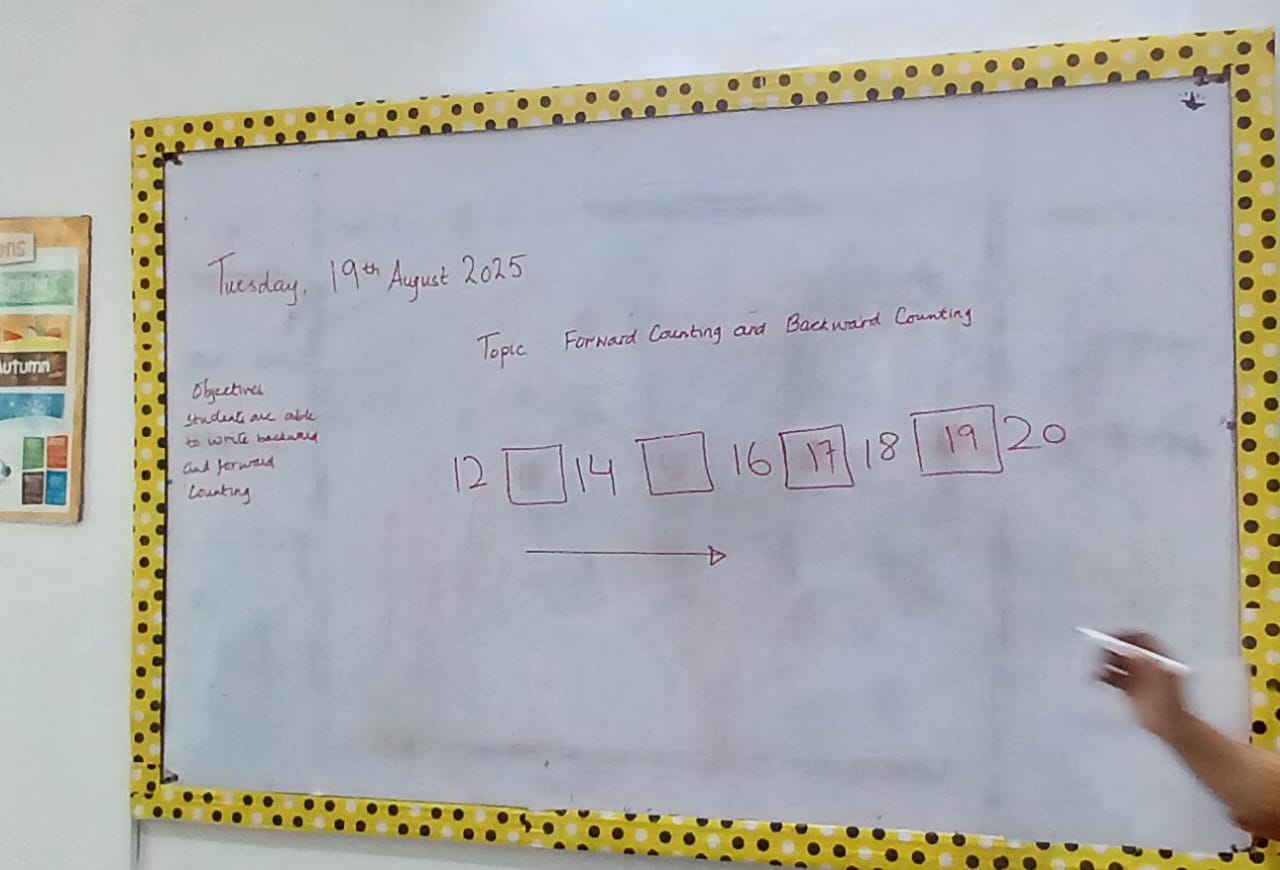 ons
Autumn
Tuesday, 19th August 2025
Topic Forward Counting and Backward Counting
Objectives
students are able
to write backward
and forward
Counting
12 14 16 17 18 19 20